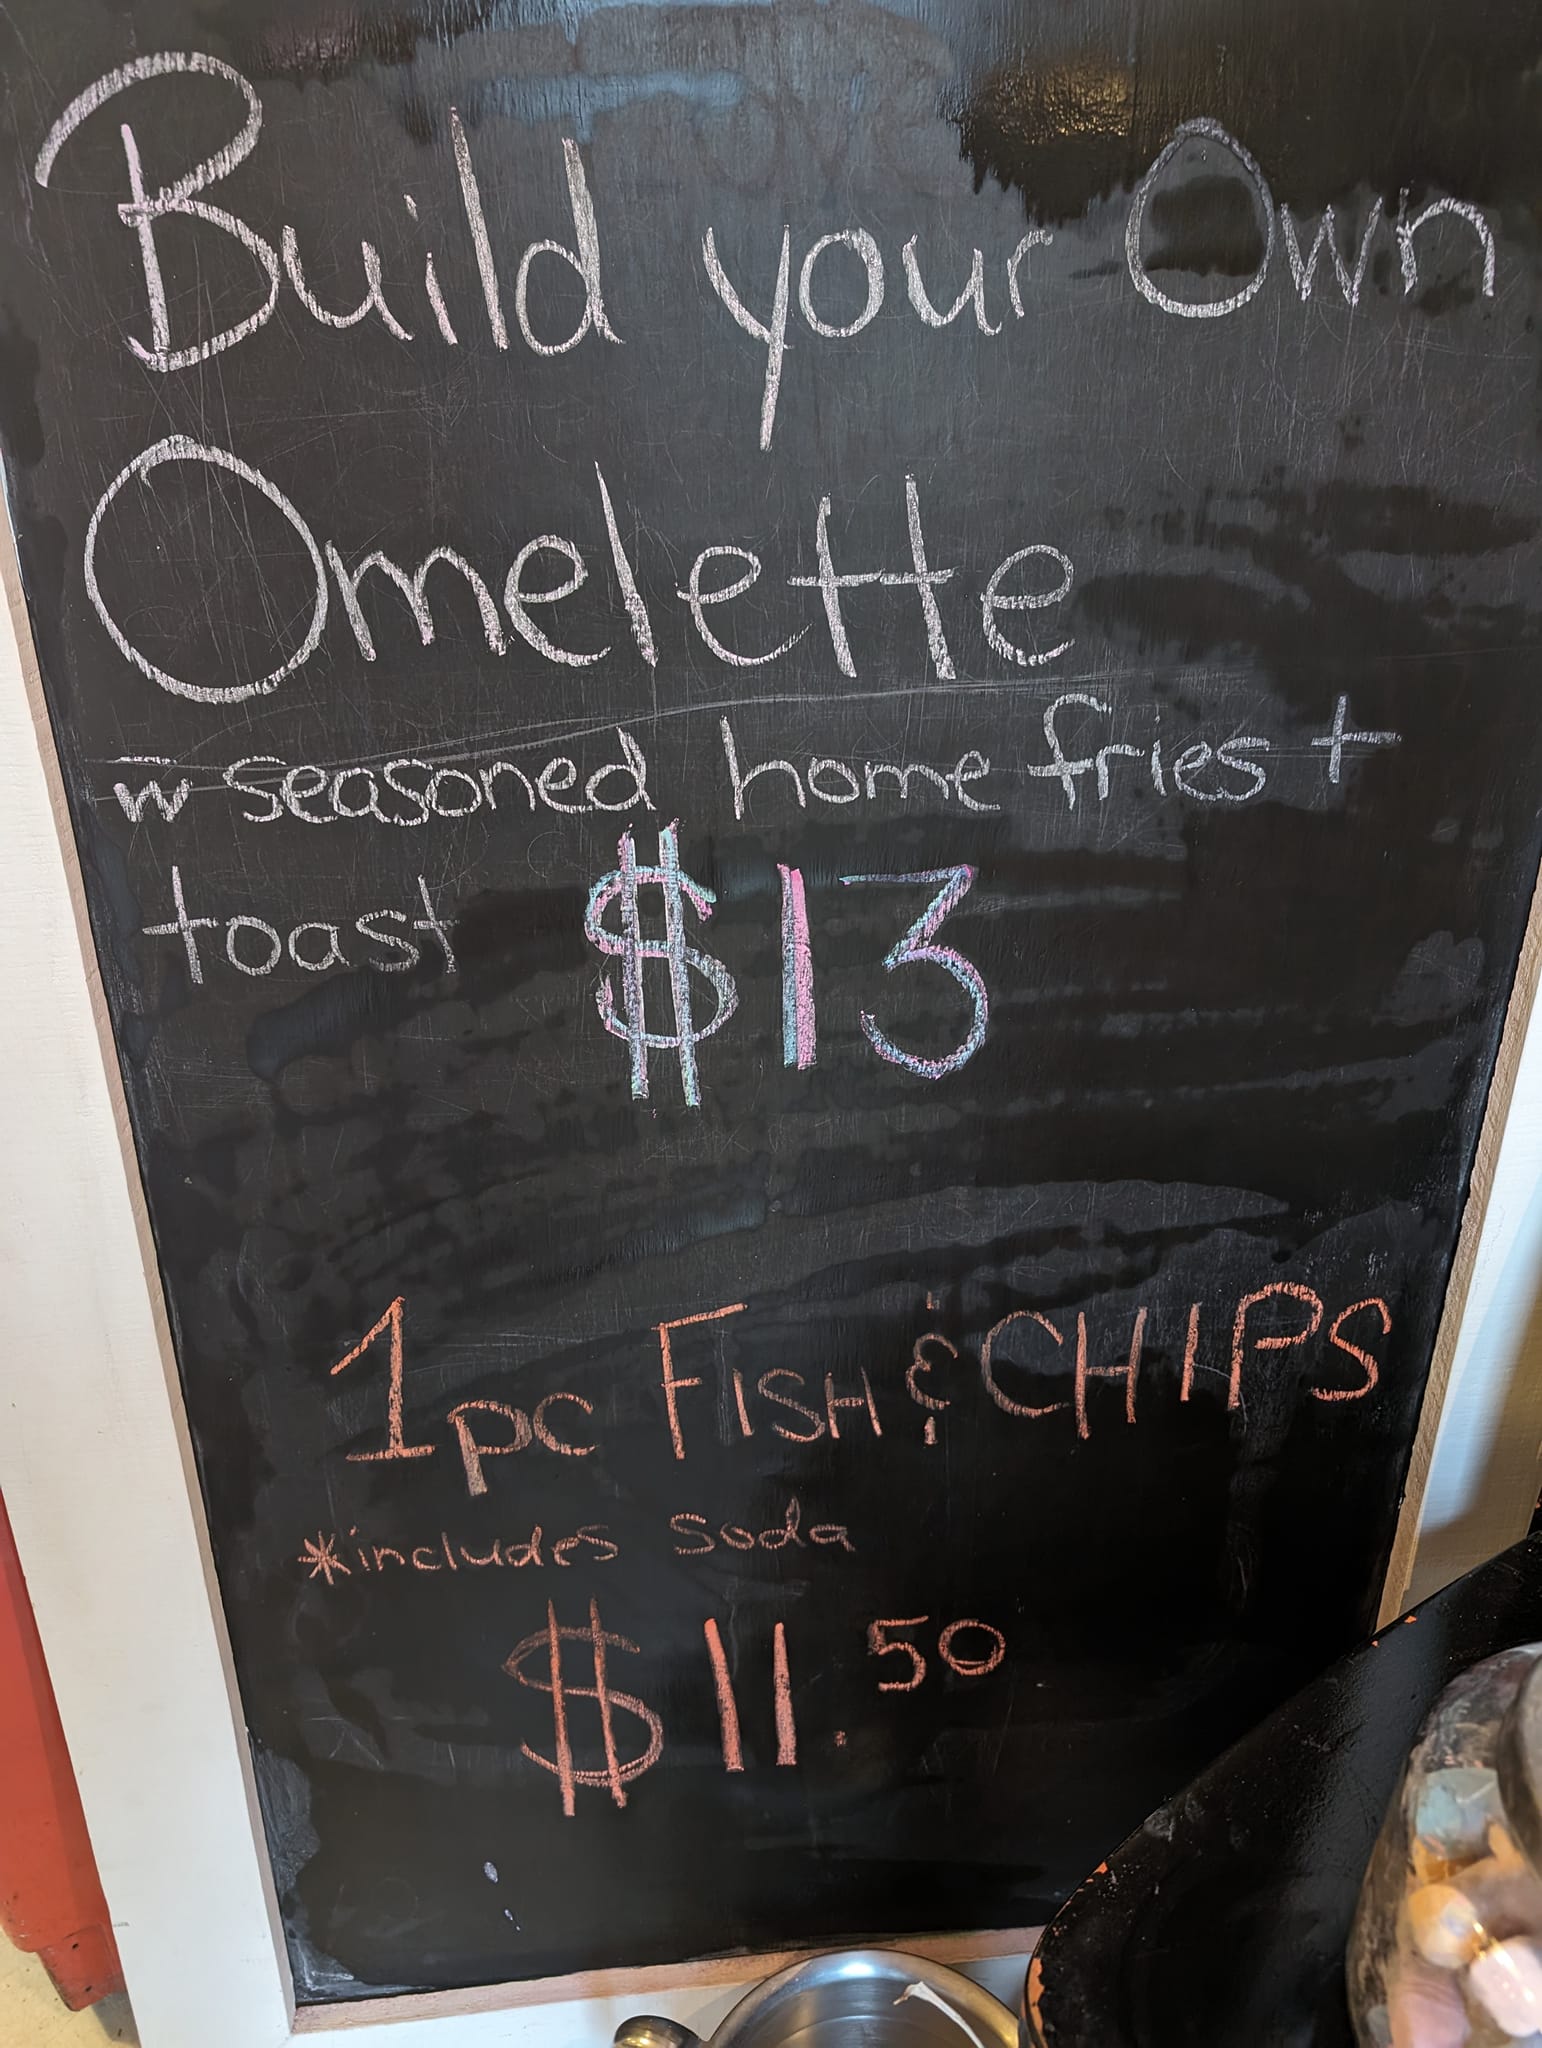 Build your Own
Omelette
w̅ seasoned home fries +
toast $13
1pc FISH & CHIPS
*includes soda
$11.50